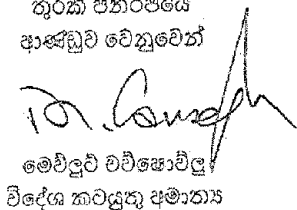 තුර්කි ජනරජයේ
ආණ්ඩුව වෙනුවෙන්
මෙව්ලුට් චව්ෂොව්ලු
විදේශ කටයුතු අමාත්‍ය